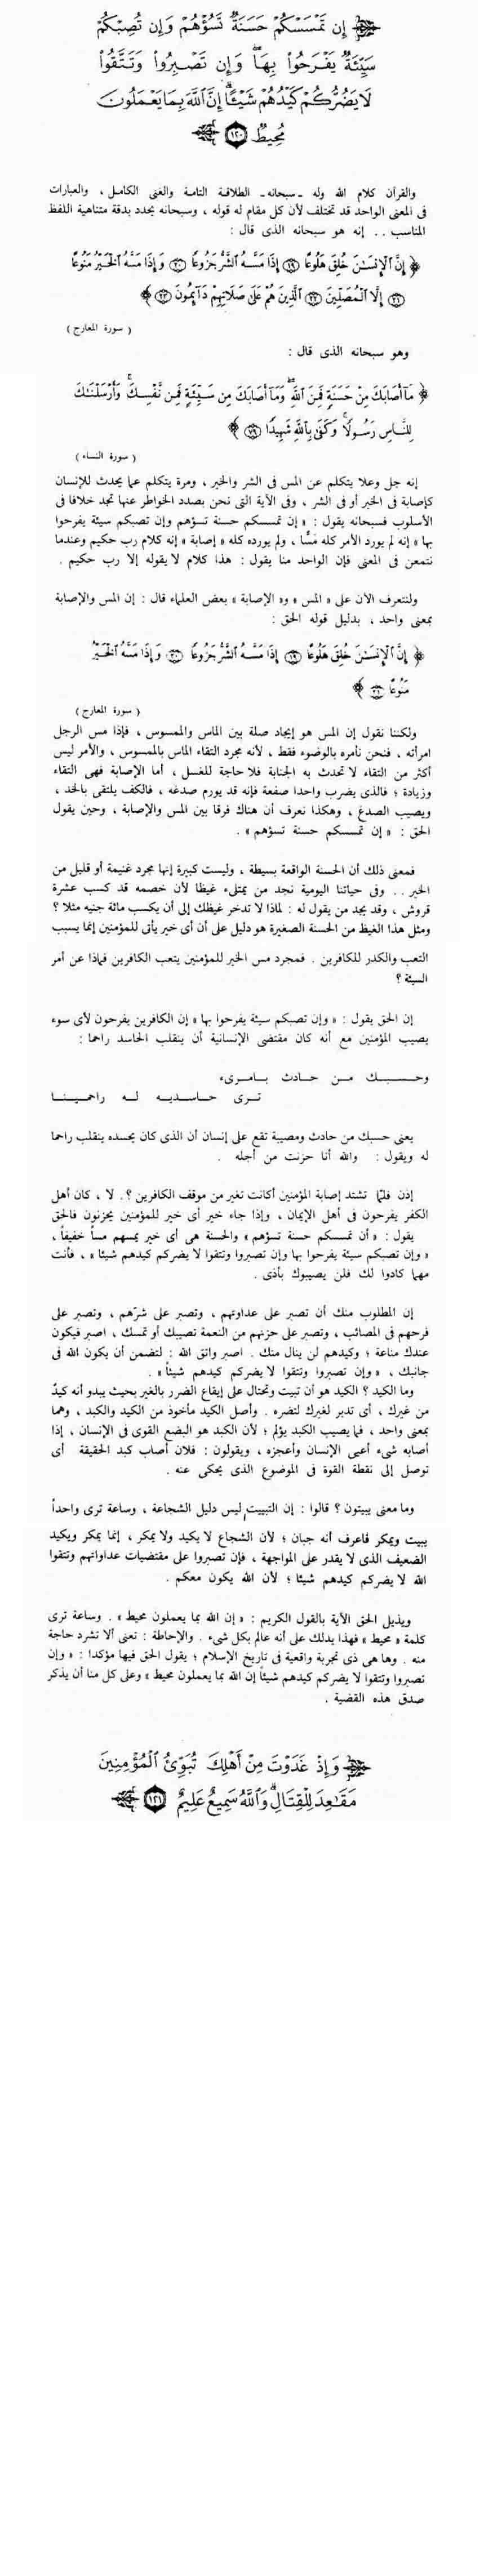 إِن تَمْسَسْكُمْ حَسَنَةٌ تَسُؤْهُمْ وَإِن تُصِبْكُمْ
سَيِّئَةٌ يَفْرَحُوا۟ بِهَا وَإِن تَصْبِرُوا۟ وَتَتَّقُوا۟
لَا يَضُرُّكُمْ كَيْدُهُمْ شَيْـًٔا إِنَّ ٱللَّهَ بِمَا يَعْمَلُونَ
مُحِيطٌ ١٢٠
والقرآن كلام الله وله ـ سبحانه ـ الطلاقة التامة والغنى الكامل ، والعبارات
فى المعنى الواحد قد تختلف لأن كل مقام له قوله ، وسبحانه يحدد بدقة متناهية اللفظ
المناسب . . إنه هو سبحانه الذى قال :
﴿ إِنَّ ٱلْإِنسَٰنَ خُلِقَ هَلُوعًا ١٩ إِذَا مَسَّهُ ٱلشَّرُّ جَزُوعًا ٢٠ وَإِذَا مَسَّهُ ٱلْخَيْرُ مَنُوعًا
٢١ إِلَّا ٱلْمُصَلِّينَ ٢٢ ٱلَّذِينَ هُمْ عَلَىٰ صَلَاتِهِمْ دَآئِمُونَ ٢٣ ﴾
( سورة المعارج )
وهو سبحانه الذى قال :
﴿ مَآ أَصَابَكَ مِنْ حَسَنَةٍ فَمِنَ ٱللَّهِ وَمَآ أَصَابَكَ مِن سَيِّئَةٍ فَمِن نَّفْسِكَ وَأَرْسَلْنَٰكَ
لِلنَّاسِ رَسُولًا وَكَفَىٰ بِٱللَّهِ شَهِيدًا ٧٩ ﴾
( سورة النساء )
إنه جل وعلا يتكلم عن المس فى الشر والخير ، ومرة يتكلم عما يحدث للإنسان
كإصابة فى الخير أو فى الشر ، وفى الآية التى نحن بصدد الخواطر عنها تجد خلافا فى
الأسلوب فسبحانه يقول : « إن تمسسكم حسنة تسؤهم وإن تصبكم سيئة يفرحوا
بها » إنه لم يورد الأمر كله مسًّا ، ولم يورده كله « إصابة » إنه كلام رب حكيم وعندما
نتمعن فى المعنى فإن الواحد منا يقول : هذا كلام لا يقوله إلا رب حكيم .
ولنتعرف الآن على « المس » و« الإصابة » بعض العلماء قال : إن المس والإصابة
بمعنى واحد ، بدليل قوله الحق :
﴿ إِنَّ ٱلْإِنسَٰنَ خُلِقَ هَلُوعًا ١٩ إِذَا مَسَّهُ ٱلشَّرُّ جَزُوعًا ٢٠ وَإِذَا مَسَّهُ ٱلْخَيْرُ
مَنُوعًا ٢١ ﴾
( سورة المعارج )
ولكننا نقول إن المس هو إيجاد صلة بين الماس والممسوس ، فإذا مس الرجل
امرأته ، فنحن نأمره بالوضوء فقط ، لأنه مجرد التقاء الماس بالممسوس ، والأمر ليس
أكثر من التقاء لا تحدث به الجنابة فلا حاجة للغسل ، أما الإصابة فهى التقاء
وزيادة ؛ فالذى يضرب واحدا صفعة فإنه قد يورم صدغه ، فالكف يلتقى بالخد ،
ويصيب الصدغ ، وهكذا نعرف أن هناك فرقا بين المس والإصابة ، وحين يقول
الحق : « إن تمسسكم حسنة تسؤهم » .
فمعنى ذلك أن الحسنة الواقعة بسيطة ، وليست كبيرة إنها مجرد غنيمة أو قليل من
الخير . . وفى حياتنا اليومية نجد من يمتلىء غيظا لأن خصمه قد كسب عشرة
قروش ، وقد يجد من يقول له : لماذا لا تدخر غيظك إلى أن يكسب مائة جنيه مثلا ؟
ومثل هذا الغيظ من الحسنة الصغيرة هو دليل على أن أى خير يأتى للمؤمنين إنما يسبب
التعب والكدر للكافرين . فمجرد مس الخير للمؤمنين يتعب الكافرين فماذا عن أمر
السيئة ؟
إن الحق يقول : « وإن تصبكم سيئة يفرحوا بها » إن الكافرين يفرحون لأى سوء
يصيب المؤمنين مع أنه كان مقتضى الإنسانية أن ينقلب الحاسد راحما :
وحسبك من حادث بامرىء
ترى حاسديه له راحمينا
يعنى حسبك من حادث ومصيبة تقع على إنسان أن الذى كان يحسده ينقلب راحما
له ويقول : والله أنا حزنت من أجله .
إذن فلما تشتد إصابة المؤمنين أكانت تغير من موقف الكافرين ؟ . لا ، كان أهل
الكفر يفرحون فى أهل الإيمان ، وإذا جاء خير أى خير للمؤمنين يحزنون فالحق
يقول : « أن تمسكم حسنة تسؤهم » والحسنة هى أى خير يمسهم مساً خفيفاً ،
« وإن تصبكم سيئة يفرحوا بها وإن تصبروا وتتقوا لا يضركم كيدهم شيئا » ، فأنت
مهما كادوا لك فلن يصيبوك بأذى .
إن المطلوب منك أن تصبر على عداوتهم ، وتصبر على شرّهم ، وتصبر على
فرحهم فى المصائب ، وتصبر على حزنهم من النعمة تصيبك أو تمسك ، اصبر فيكون
عندك مناعة ؛ وكيدهم لن ينال منك . اصبر واتق الله : لتضمن أن يكون الله فى
جانبك ، « وإن تصبروا وتتقوا لا يضركم كيدهم شيئاً » .
وما الكيد ؟ الكيد هو أن تبيت وتحتال على إيقاع الضرر بالغير بحيث يبدو أنه كيدٌ
من غيرك ، أى تدبر لغيرك لتضره . وأصل الكيد مأخوذ من الكيد والكبد ، وهما
بمعنى واحد ، فما يصيب الكبد يؤلم ؛ لأن الكبد هو البضع القوى فى الإنسان ، إذا
أصابه شىء أعيى الإنسان وأعجزه ، ويقولون : فلان أصاب كبد الحقيقة أى
توصل إلى نقطة القوة فى الموضوع الذى يحكى عنه .
وما معنى يبيتون ؟ قالوا : إن التبييت ليس دليل الشجاعة ، وساعة ترى واحداً
يبيت ويمكر فاعرف أنه جبان ؛ لأن الشجاع لا يكيد ولا يمكر ، إنما يمكر ويكيد
الضعيف الذى لا يقدر على المواجهة ، فإن تصبروا على مقتضيات عداواتهم وتتقوا
الله لا يضركم كيدهم شيئا ؛ لأن الله يكون معكم .
ويذيل الحق الآية بالقول الكريم : « إن الله بما يعملون محيط » . وساعة ترى
كلمة « محيط » فهذا يدلك على أنه عالم بكل شىء . والإحاطة : تعنى ألا تشرد حاجة
منه . وها هى ذى تجربة واقعية فى تاريخ الإسلام ؛ يقول الحق فيها مؤكدا : « وإن
تصبروا وتتقوا لا يضركم كيدهم شيئاً إن الله بما يعملون محيط » وعلى كل منا أن يذكر
صدق هذه القضية .
وَإِذْ غَدَوْتَ مِنْ أَهْلِكَ تُبَوِّئُ ٱلْمُؤْمِنِينَ
مَقَٰعِدَ لِلْقِتَالِ وَٱللَّهُ سَمِيعٌ عَلِيمٌ ١٢١